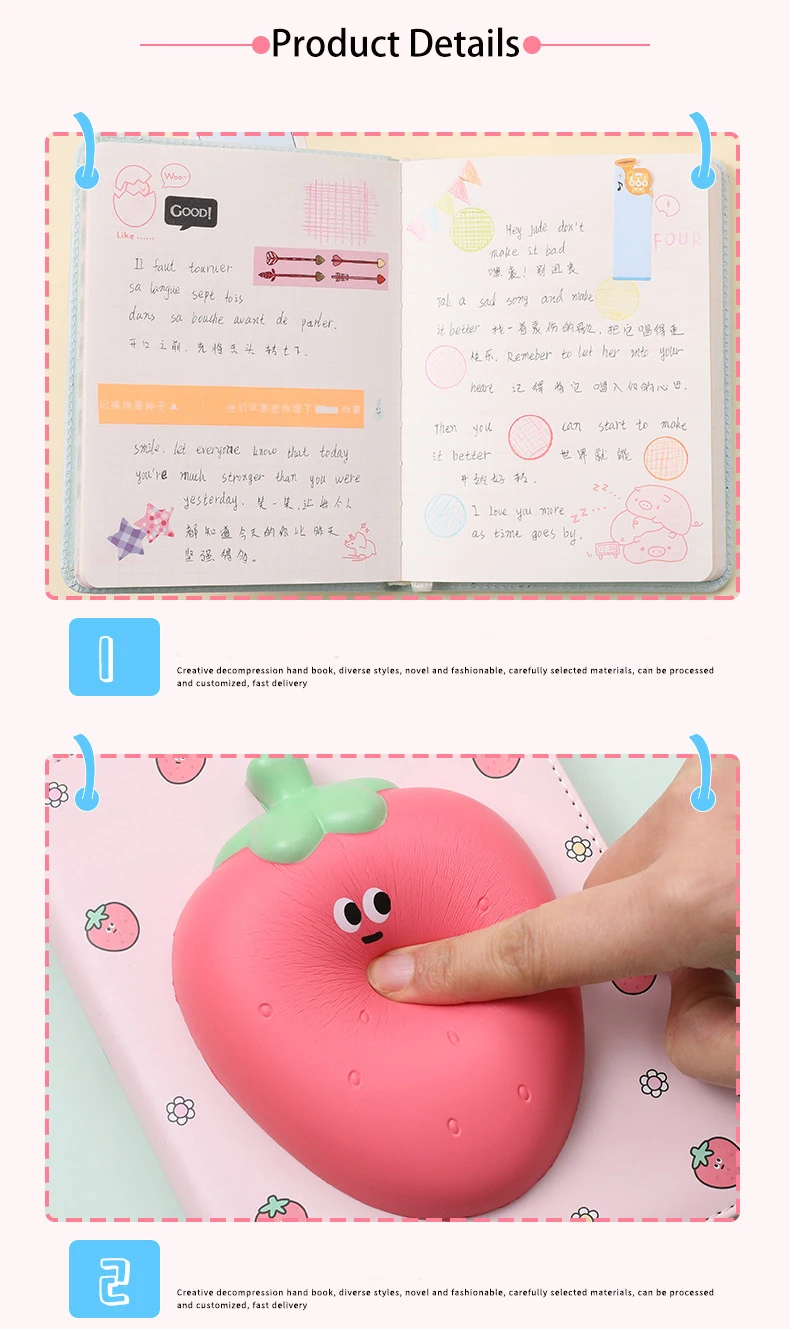 Product Details
Woo~
GOOD!
Like ......
Il faut tourner
sa langue sept fois
dans sa bouche avant de parler.
开口之前，先将舌头转七下.
smile, let everyone know that today
you're much stronger than you were
yesterday. 笑一笑,让每个人
都知道今天的你比昨天
坚强得多。
666
FOUR
Hey Jude don't
make it bad
嘿裘！别沮丧
Tak a sad song and make
it better 找一首哀伤的歌, 把它唱得更
快乐. Remeber to let her into your
heart 记得将它唱入你的心田.
Then you can start to make
it better 世界就能
开始好转.
I love you more
as time goes by.
zz..
zz..
1
Creative decompression hand book, diverse styles, novel and fashionable, carefully selected materials, can be processed
and customized, fast delivery
2
Creative decompression hand book, diverse styles, novel and fashionable, carefully selected materials, can be processed
and customized, fast delivery